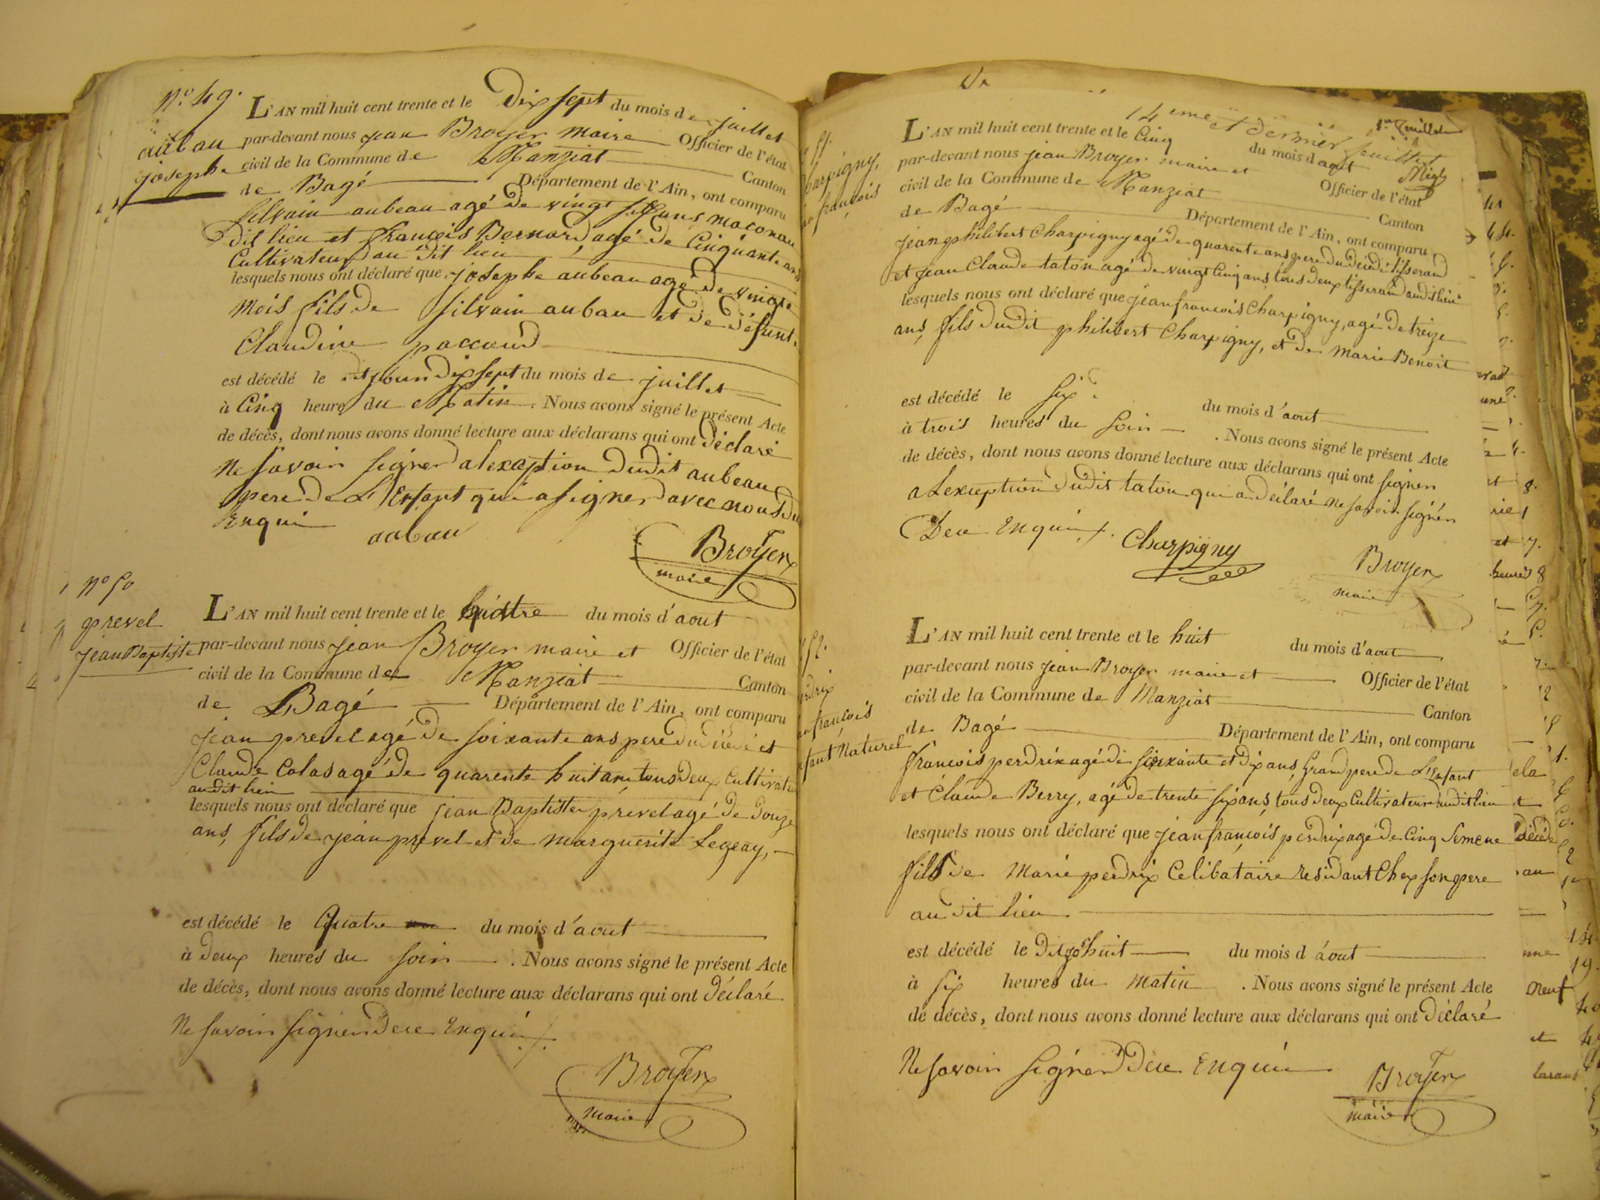 N° 49.
aubau
josephe
L'AN mil huit cent trente et le Dix sept du mois de juillet
par-devant nous jean Broyer maire Officier de l'état
civil de la Commune de Manziat Canton
de Bagé Département de l'Ain, ont comparu
Silvain aubeau agé de vingt sept ans maconau
Dit lieu et françois Bernard agé de Cinquante ans
Cultivateur au dit lieu
lesquels nous ont déclaré que josephe aubeau agé de vingt
mois fils de silvain aubau et de défunte
Claudine paccoud
est décédé le dit jour dix sept du mois de juillet
à Cinq heures du Matin. Nous avons signé le présent Acte
de décès, dont nous avons donné lecture aux déclarans qui ont déclaré
Ne savoir signer a lexeption dudit aubeau
pere de L'Enfant qui a signer avec nous du
Enquis
aubau
Broyer
maire
N° 50
prevel
jean Baptiste
L'AN mil huit cent trente et le quatre du mois d'aout
par-devant nous jean Broyer maire et Officier de l'état
civil de la Commune de Manziat Canton
de Bagé Département de l'Ain, ont comparu
jean prevel agé de soixante ans pere du décédé et
Claude Colas agé de quarente huit ans tous deux Cultivate
audit lieu
lesquels nous ont déclaré que jean Baptiste prévelagé de Douze
ans, fils de jean prevel et de marguerite Legeay,
est décédé le Quatre du mois d'aout
à deux heures du soir. Nous avons signé le présent Acte
de décès, dont nous avons donné lecture aux déclarans qui ont déclaré
Ne savoir signer De ce Enquis
Broyer
maire
51.
harpigny,
françois
14eme et dernier juillet
L'AN mil huit cent trente et le Cinq du mois d'aout
par-devant nous jean Broyer maire et Officier de l'état
civil de la Commune de Manziat Canton
de Bagé Département de l'Ain, ont comparu
jean philibert Charpigny agé de quarente ans pere du décédé tisserand
et jean Claude taton agé de vingt Cinq ans, tous deux tisserand audit lieu
lesquels nous ont déclaré que jean françois Charpigny, agé de treize
ans, fils dudit philibert Charpigny, et de marie Benoit
est décédé le six du mois d'aout
à trois heures du soir. Nous avons signé le présent Acte
de décès, dont nous avons donné lecture aux déclarans qui ont signer
a Lexeption dudit taton qui a déclaré ne savoir signér
De ce Enquis
Charpigny
Broyer
maire
52.
perdrix
françois
enfant Naturel
L'AN mil huit cent trente et le huit du mois d'aout
par-devant nous jean Broyer maire et Officier de l'état
civil de la Commune de Manziat Canton
de Bagé Département de l'Ain, ont comparu
francois perdrix agé de soixante et dix ans, Grand pere de L'Enfant
et Claude Berry, agé de trente six ans, tous deux Cultivateur audit lieu
lesquels nous ont déclaré que jean françois perdrix agé de Cinq Semene
fils de Marie perdrix Celibataire residant Chez son pere
au dit lieu
est décédé le Dit jour huit du mois d'aout
à six heures du matin. Nous avons signé le présent Acte
de décès, dont nous avons donné lecture aux déclarans qui ont déclaré
Ne savoir signér De ce Enquis
Broyer
maire